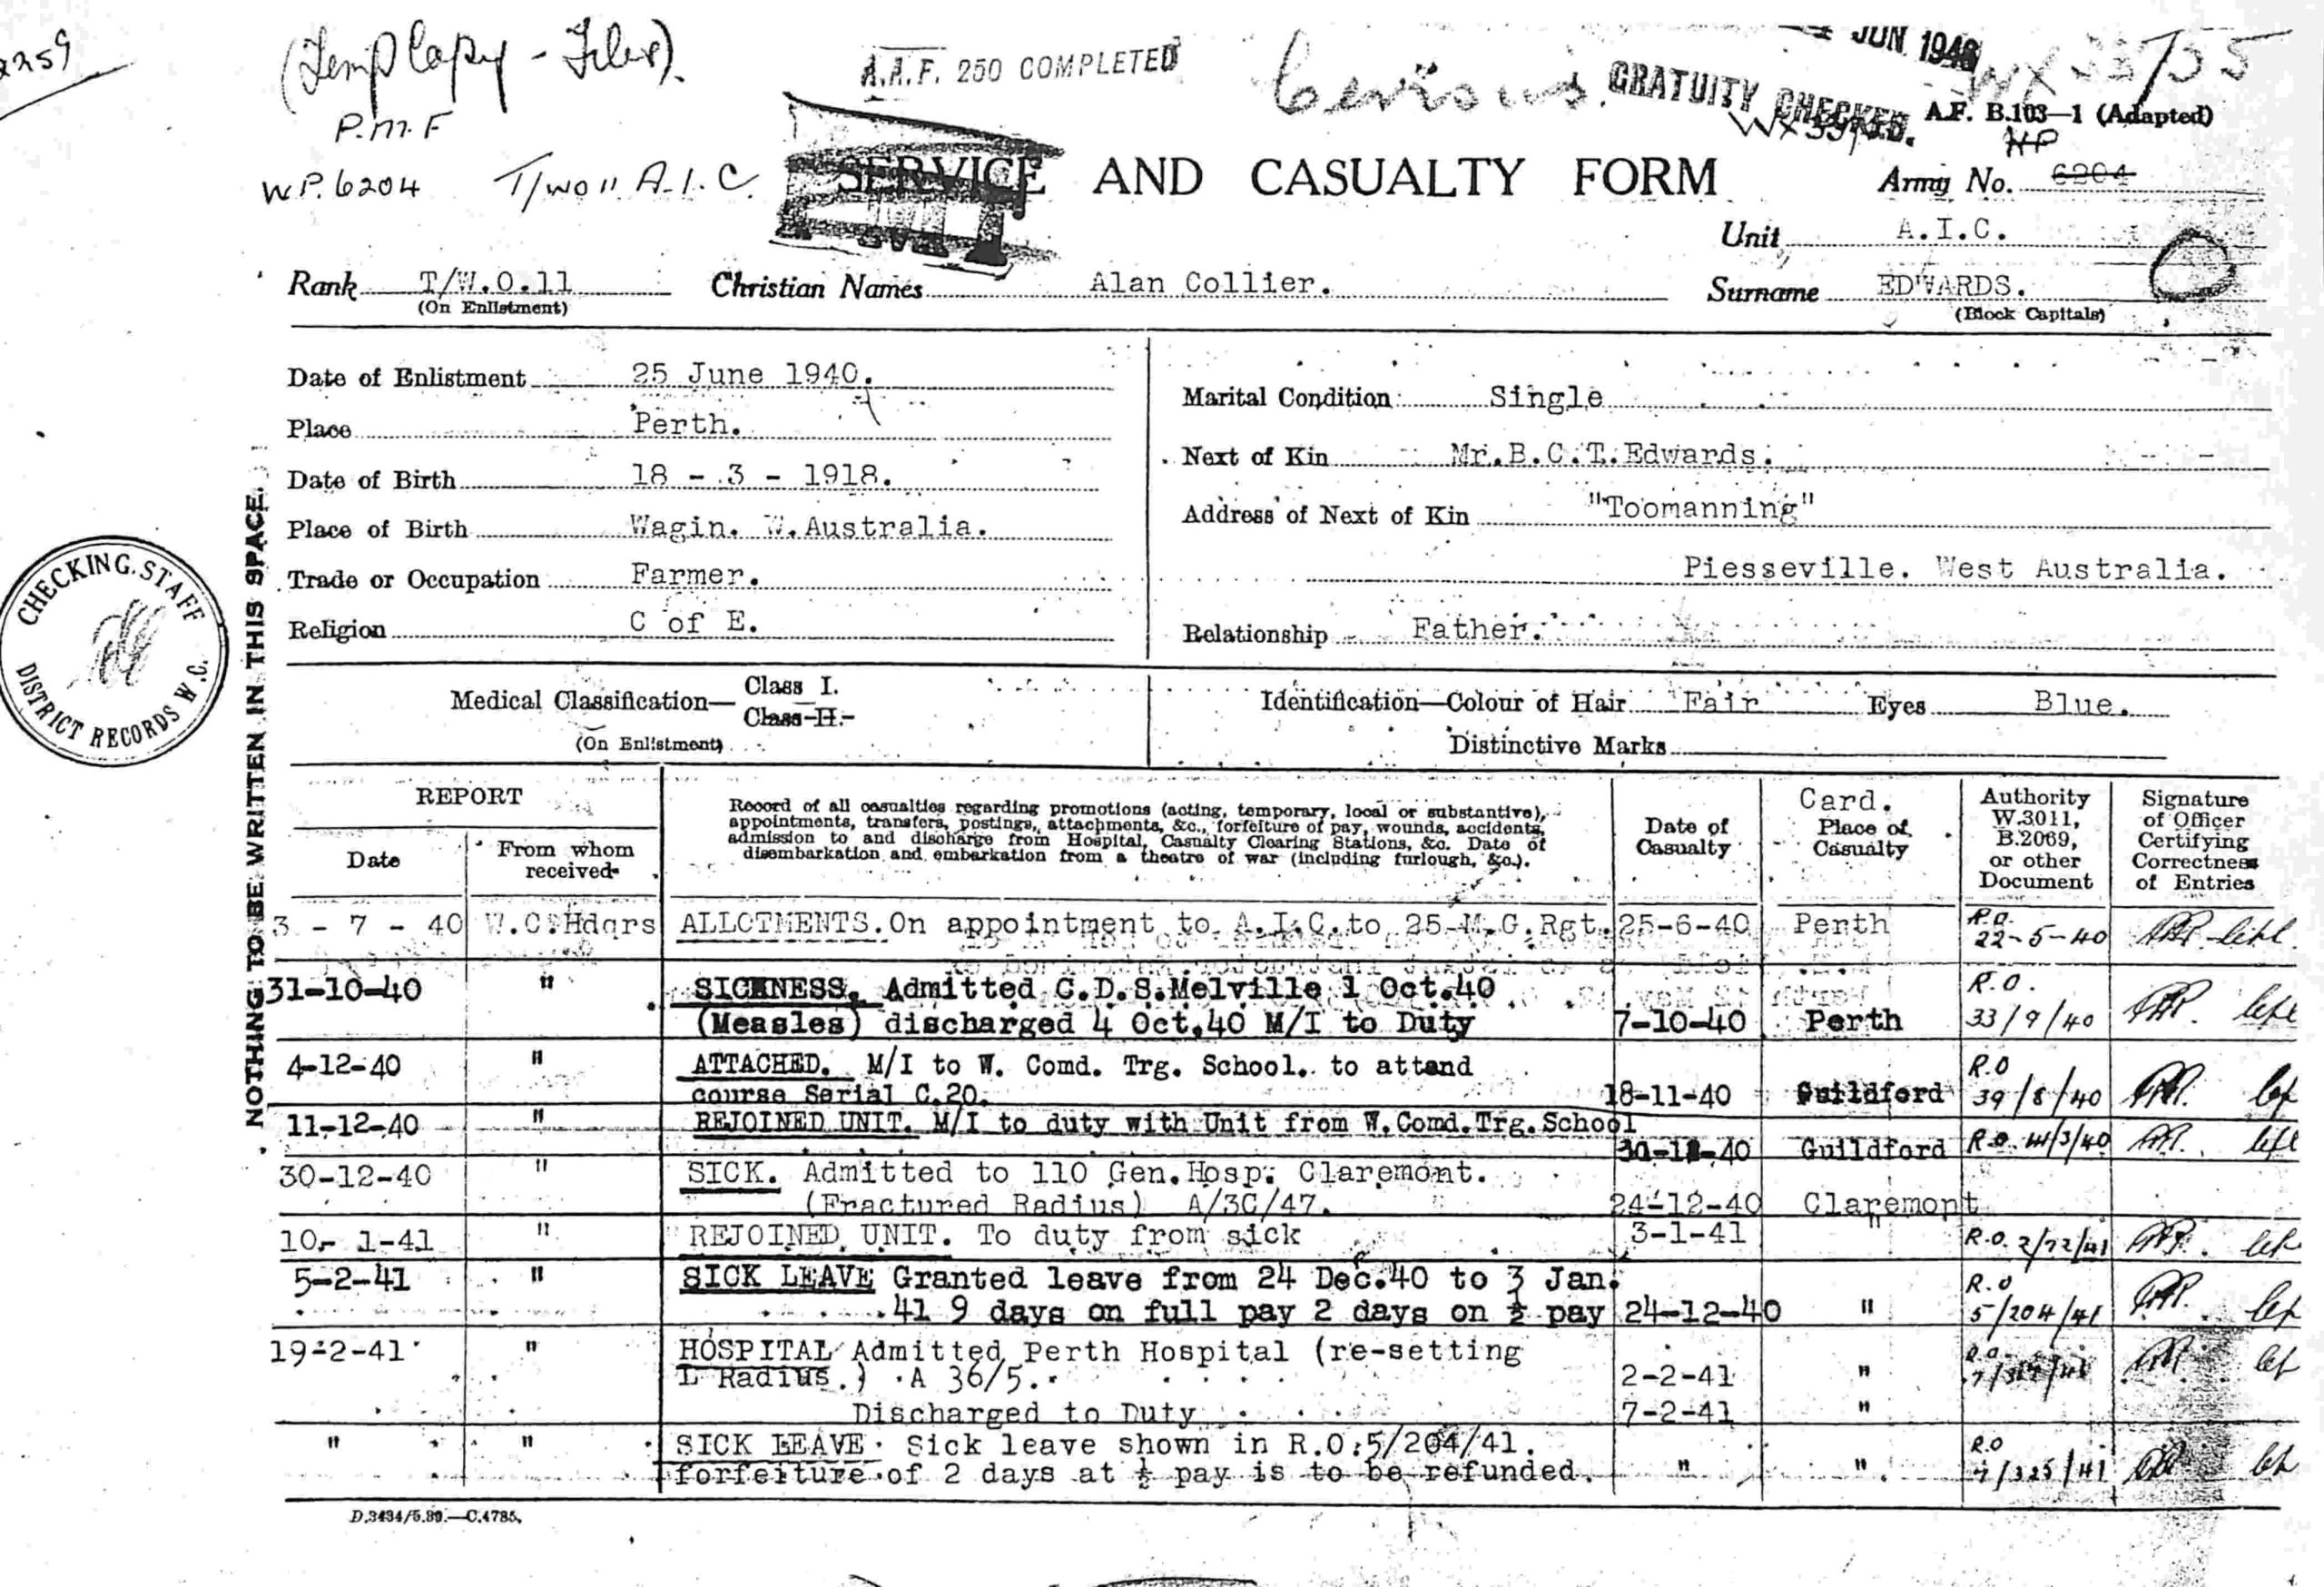 2259
(Temp Copy - Files).
P.M.F
WP.6204 T/WO 11 A.I.C.
A.A.F. 250 COMPLETED
JUN 1946
GRATUITY CHECKED.
A.F. B.103—1 (Adapted)
WP
SERVICE AND CASUALTY FORM
Army No. 6204
Unit A.I.C.
Rank T/W.O.11 Christian Names Alan Collier. Surname EDWARDS.
(On Enlistment) (Block Capitals)
Date of Enlistment 25 June 1940.
Place Perth.
Date of Birth 18 - 3 - 1918.
Place of Birth Wagin. W.Australia.
Trade or Occupation Farmer.
Religion C of E.
Marital Condition Single
Next of Kin Mr.B.C.T.Edwards.
Address of Next of Kin "Toomanning"
Piesseville. West Australia.
Relationship Father.
Medical Classification— Class I.
Class II.
(On Enlistment)
Identification—Colour of Hair Fair Eyes Blue.
Distinctive Marks
NOTHING TO BE WRITTEN IN THIS SPACE.
CHECKING STAFF
DISTRICT RECORDS W.C.
REPORT
Date
From whom received
Record of all casualties regarding promotions (acting, temporary, local or substantive),
appointments, transfers, postings, attachments, &c., forfeiture of pay, wounds, accidents,
admission to and discharge from Hospital, Casualty Clearing Stations, &c. Date of
disembarkation and embarkation from a theatre of war (including furlough, &c.).
Date of Casualty
Card.
Place of Casualty
Authority W.3011, B.2069, or other Document
Signature of Officer Certifying Correctness of Entries
3 - 7 - 40 W.C.Hdqrs ALLOTMENTS. On appointment to A.I.C. to 25 M.G.Rgt. 25-6-40 Perth R.O. 22-5-40
31-10-40 " SICKNESS. Admitted C.D.S.Melville 1 Oct.40
(Measles) discharged 4 Oct.40 M/I to Duty 7-10-40 Perth R.O. 33/9/40
4-12-40 " ATTACHED. M/I to W. Comd. Trg. School. to attend
course Serial C.20. 18-11-40 Guildford R.O 39/8/40
11-12-40 " REJOINED UNIT. M/I to duty with Unit from W.Comd.Trg.School
Guildford R.O.
30-12-40 " SICK. Admitted to 110 Gen.Hosp. Claremont.
(Fractured Radius) A/3C/47. 24-12-40 Claremont
10- 1-41 " REJOINED UNIT. To duty from sick 3-1-41 " R.O. 2/72/41
5-2-41 " SICK LEAVE Granted leave from 24 Dec.40 to 3 Jan.
41 9 days on full pay 2 days on ½ pay 24-12-40 " R.O 5/204/41
19-2-41 " HOSPITAL Admitted Perth Hospital (re-setting
L Radius.) A 36/5. 2-2-41 "
Discharged to Duty 7-2-41 "
" " SICK LEAVE. Sick leave shown in R.O.5/204/41.
forfeiture of 2 days at ½ pay is to be refunded. " " R.O 7/325/41
D.3434/5.39.—C.4785.